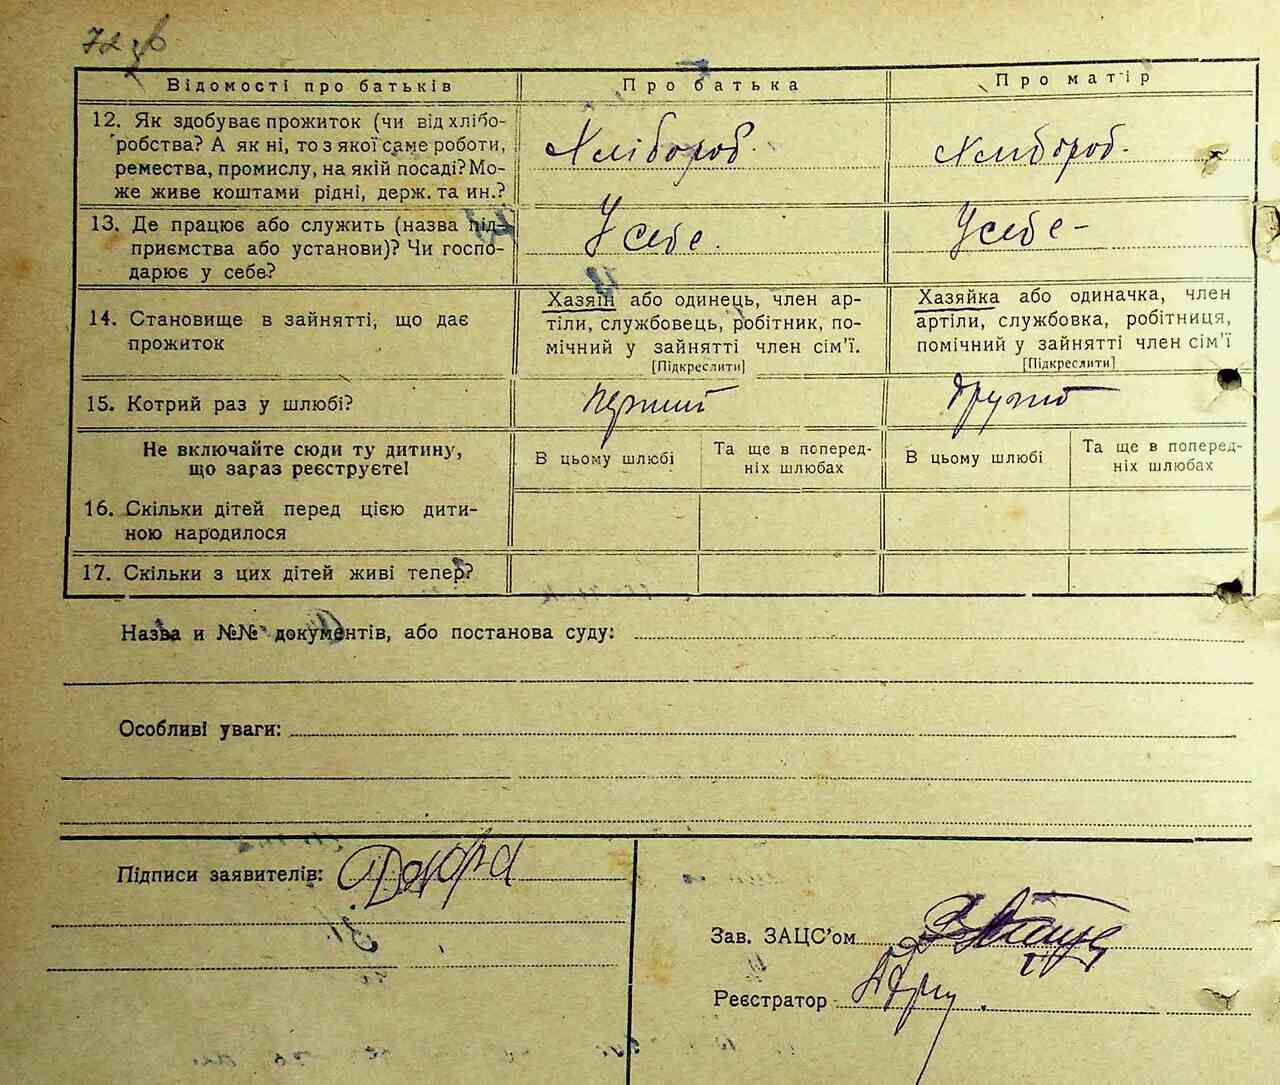 72 зв
Відомості про батьків
Про батька
Про матір
12. Як здобуває прожиток (чи від хлібо-
робства? А як ні, то з якої саме роботи,
ремества, промислу, на якій посаді? Мо-
же живе коштами рідні, держ. та ин.?
Хлібороб.
Хлибороб.
13. Де працює або служить (назва під-
приємства або установи)? Чи госпо-
дарює у себе?
У себе.
У себе -
14. Становище в зайнятті, що дає
прожиток
Хазяїн або одинець, член ар-
тіли, службовець, робітник, по-
мічний у зайнятті член сім'ї.
[Підкреслити]
Хазяйка або одиначка, член
артіли, службовка, робітниця,
помічний у зайнятті член сім'ї
[Підкреслити]
15. Котрий раз у шлюбі?
перший
Не включайте сюди ту дитину,
що зараз реєструєте!
В цьому шлюбі
Та ще в поперед-
ніх шлюбах
В цьому шлюбі
Та ще в поперед-
ніх шлюбах
16. Скільки дітей перед цією дити-
ною народилося
17. Скільки з цих дітей живі тепер?
Назва и №№ документів, або постанова суду:
Особливі уваги:
Підписи заявителів:
Зав. ЗАЦС'ом
Реєстратор